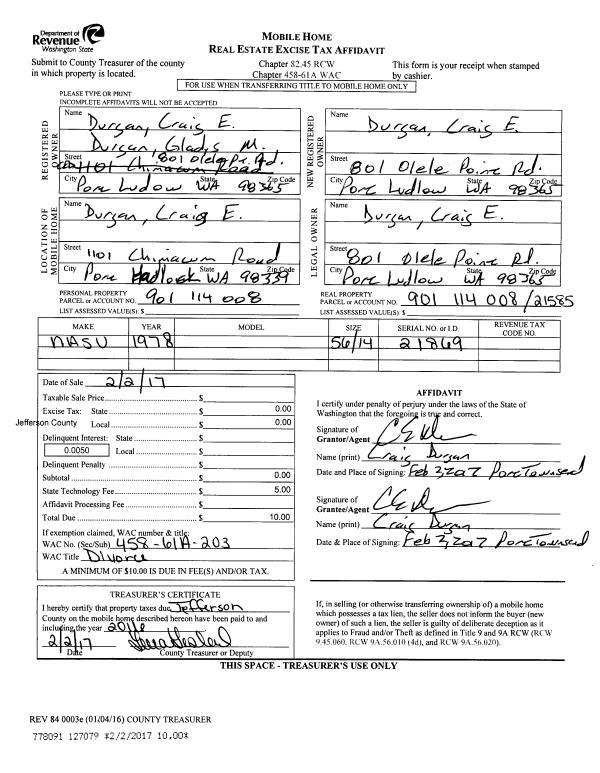 Department of
Revenue
Washington State
MOBILE HOME
REAL ESTATE EXCISE TAX AFFIDAVIT
Submit to County Treasurer of the county
in which property is located.
Chapter 82.45 RCW
Chapter 458-61A WAC
This form is your receipt when stamped
by cashier.
FOR USE WHEN TRANSFERRING TITLE TO MOBILE HOME ONLY
PLEASE TYPE OR PRINT
INCOMPLETE AFFIDAVITS WILL NOT BE ACCEPTED
REGISTERED OWNER
Name
Durgan, Craig E.
Durgan, Gladys M.
Street 801 Olele Pt. Rd.
1101 Chimacum Road
City State Zip Code
Port Ludlow WA 98365
NEW REGISTERED OWNER
Name
Durgan, Craig E.
Street
801 Olele Point Rd.
City State Zip Code
Port Ludlow WA 98365
LOCATION OF MOBILE HOME
Name
Durgan, Craig E.
Street 1101 Chimacum Road
City State Zip Code
Port Hadlock WA 98339
LEGAL OWNER
Name
Durgan, Craig E.
Street
801 Olele Point Rd.
City State Zip Code
Port Ludlow WA 98365
PERSONAL PROPERTY
PARCEL or ACCOUNT NO. 901 114 008
LIST ASSESSED VALUE(S): $
REAL PROPERTY
PARCEL or ACCOUNT NO. 901 114 008/21585
LIST ASSESSED VALUE(S): $
MAKE YEAR MODEL SIZE SERIAL NO. or I.D. REVENUE TAX CODE NO.
NASU 1978 56/14 21869
Date of Sale 2/2/17
Taxable Sale Price $
Excise Tax: State $ 0.00
Jefferson County Local $ 0.00
Delinquent Interest: State $
0.0050 Local $
Delinquent Penalty $
Subtotal $ 0.00
State Technology Fee $ 5.00
Affidavit Processing Fee $
Total Due $ 10.00
If exemption claimed, WAC number & title:
WAC No. (Sec/Sub) 458-61A-203
WAC Title Divorce
A MINIMUM OF $10.00 IS DUE IN FEE(S) AND/OR TAX.
AFFIDAVIT
I certify under penalty of perjury under the laws of the State of
Washington that the foregoing is true and correct.
Signature of
Grantor/Agent
Name (print) Craig Durgan
Date and Place of Signing: Feb 2, 2017 Port Townsend
Signature of
Grantee/Agent
Name (print) Craig Durgan
Date & Place of Signing: Feb 2, 2017 Port Townsend
TREASURER'S CERTIFICATE
I hereby certify that property taxes due Jefferson
County on the mobile home described hereon have been paid to and
including the year 2016
2/2/17
Date County Treasurer or Deputy
If, in selling (or otherwise transferring ownership of) a mobile home
which possesses a tax lien, the seller does not inform the buyer (new
owner) of such a lien, the seller is guilty of deliberate deception as it
applies to Fraud and/or Theft as defined in Title 9 and 9A RCW (RCW
9.45.060, RCW 9A.56.010 (4d), and RCW 9A.56.020).
THIS SPACE - TREASURER'S USE ONLY
REV 84 0003e (01/04/16) COUNTY TREASURER
778091 127079 *2/2/2017 10.00*